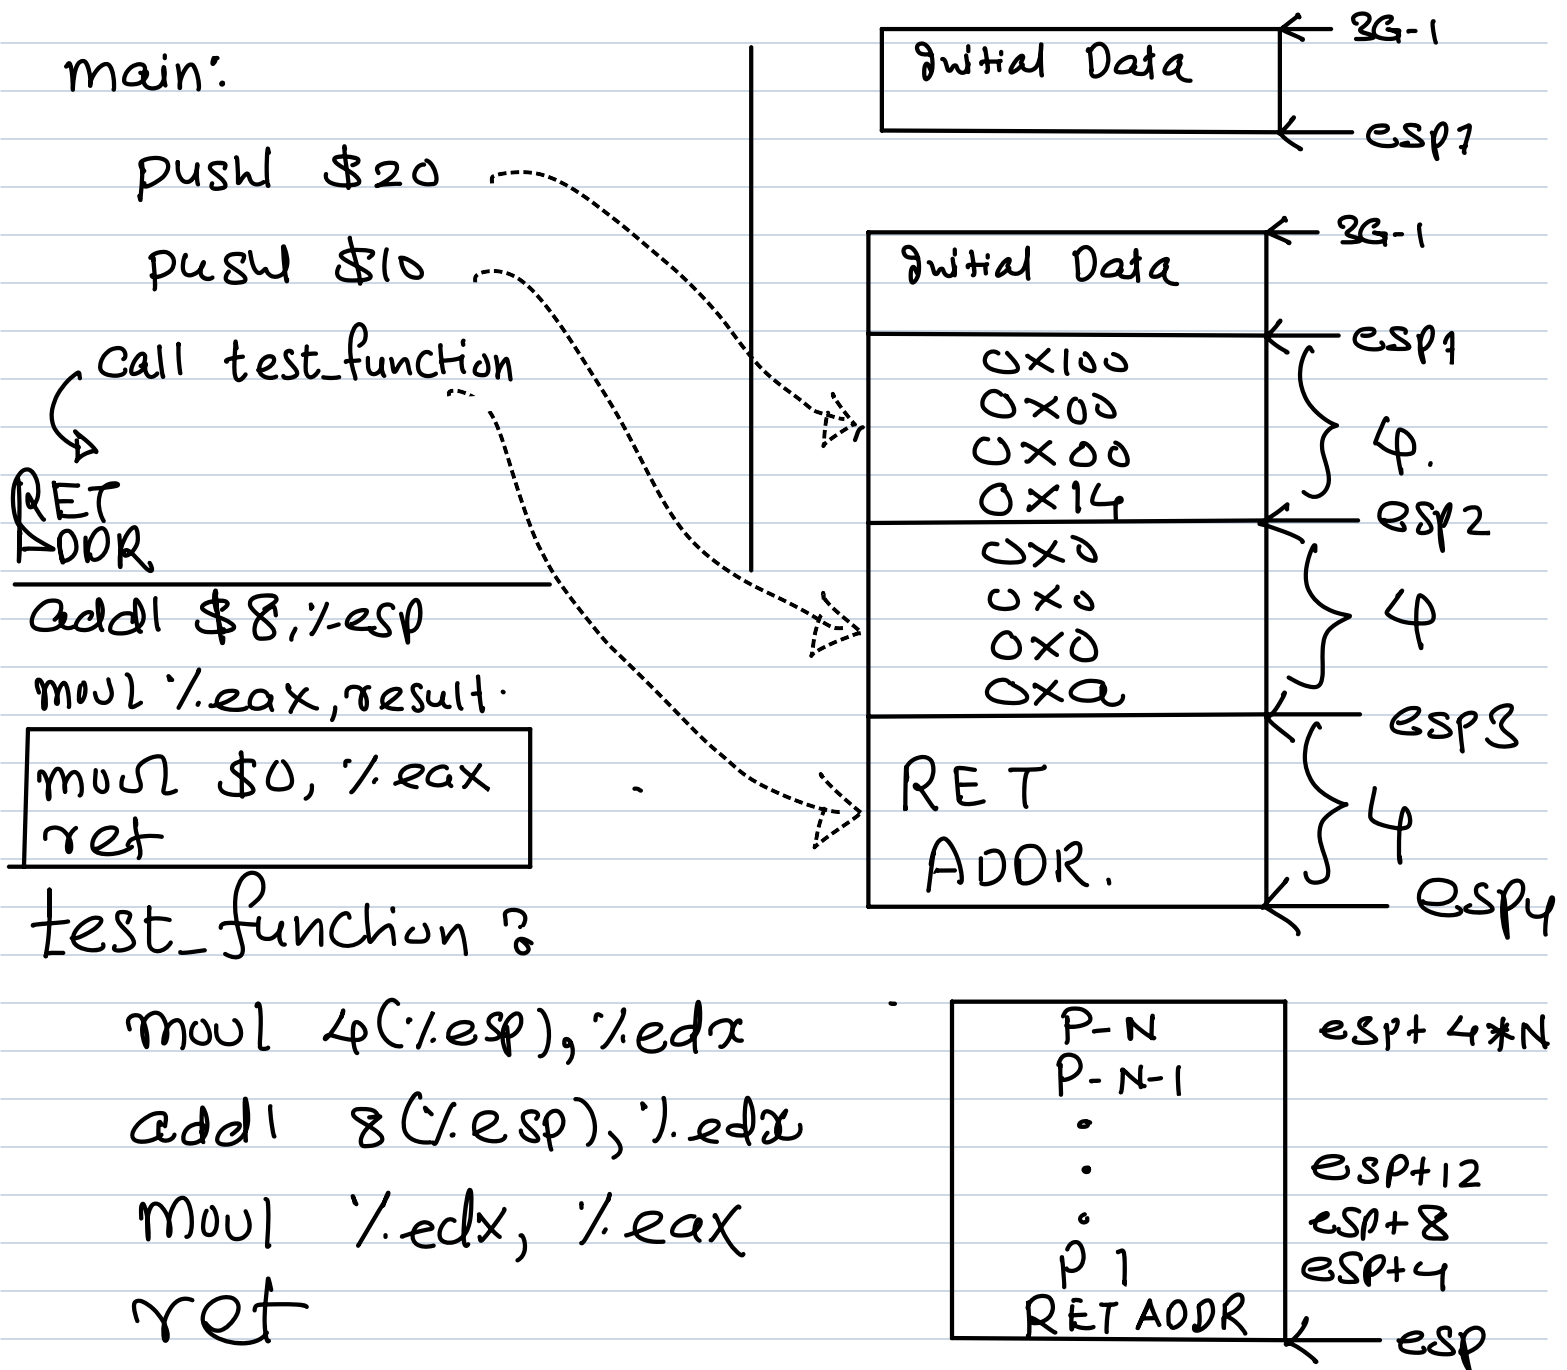 main:
pushl $20
pushl $10
call test_function
RET
ADDR
addl $8, %esp
movl %eax, result.
movl $0, %eax
ret
test_function:
movl 4(%esp), %edx
addl 8(%esp), %edx
movl %edx, %eax
ret
Initial Data
3G-1
esp1
Initial Data
3G-1
esp1
0x100
0x00
0x00
0x14
4.
esp2
0x0
0x0
0x0
0xa
4
esp3
RET
ADDR.
4
esp4
P-N esp+ 4*N
P-N-1
.
. esp+12
. esp+8
P1 esp+4
RET ADDR
esp